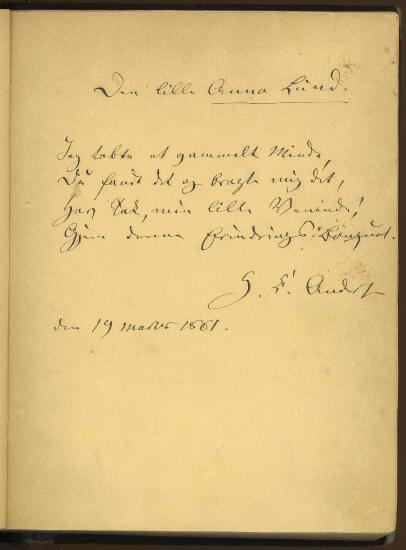 Den lille Anna Lund.
Jeg tabte et gammelt Minde,
Du fandt det og bragte mig det,
Hav Tak, min lille Veninde!
Gjem denne Erindrings Bouquet.
H. C. Anders
den 19 Marts 1861.